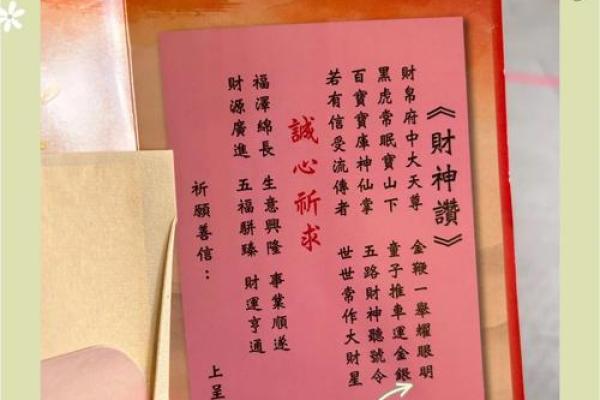 《財神讚》
財帛府中大天尊　金鞭一舉耀眼明
黑虎常眠寶山下　童子推車運金銀
百寶寶庫神仙掌　五路財神聽號令
若有信受流傳者　世世常作大財星
誠心祈求
福澤綿長　生意興隆　事業順遂
財源廣進　五福駢臻　財運亨通
祈願善信：　上呈